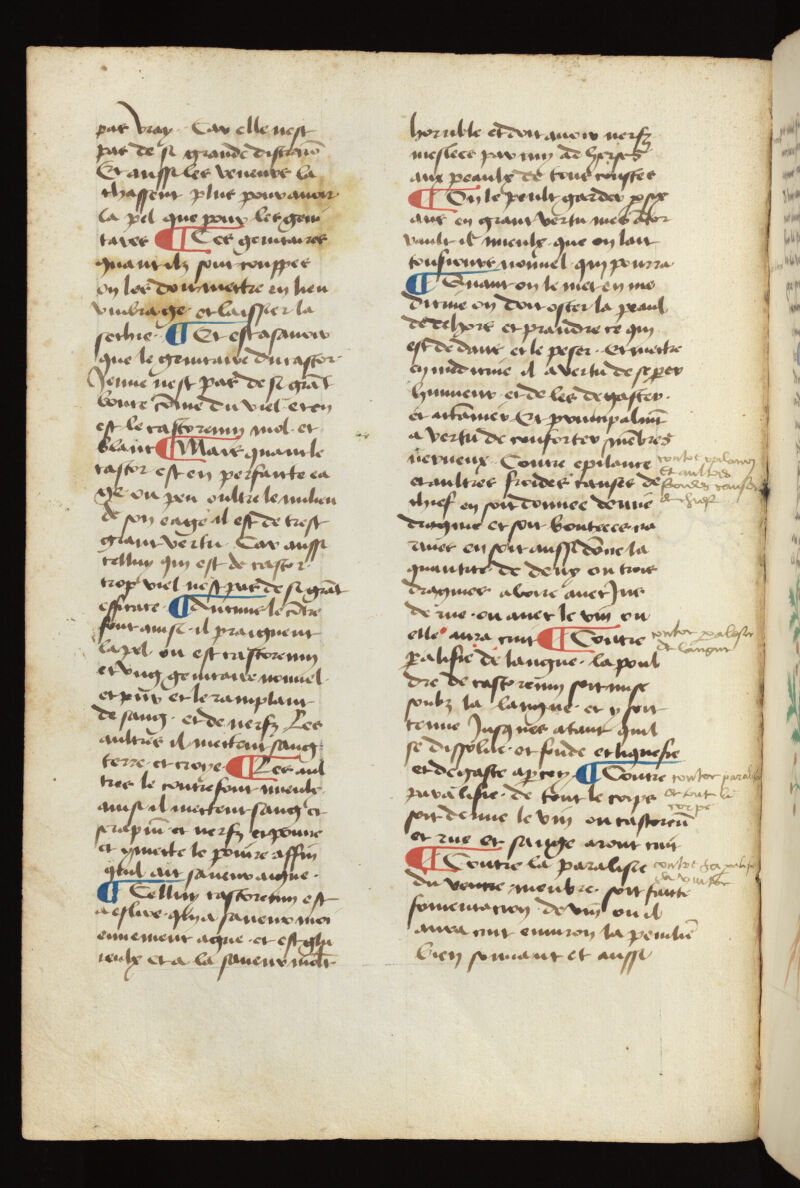 pas vray. Car elle nest
pas de si grande discretiõ
Et aussi les veneurs la
chassent plus pour avoir
la pel que pour les geni
taires ¶ Ces genitaires
quant ilz sont couppes
on les doit mettre en lieu
umbrage. et laissier la
sechie. ¶ Et est asavoir
que le genitaire du castor
Jenne nest pas de si grãt
bonte cõme du viel. et en
est le castoreum mol. et
blanc ¶ Mais quant le
castor est en perfaicte ea
ge ou peu oultre le milieu
de son eage il est de tresf
grant vertu. Car aussi
celluy qui est de castor
trop viel nest pas de si grãt
efficace. ¶ Aucuns le cõtre
font ainsi. il praignent
la pel ou est castoreum
et ung genitaire nouvel.
et et le ramplant
de sang. et de nerfz Les
aultres il mettent sang
terre et croye ¶ Les aul
tres le contrefont mieulx
ainsi il mettent sang et
serapiñ et nerfz et poivre
et y mette le poivre affin
quil ait saveur aigue.
¶ Celluy castoreum est
a eslire qui a saveur moi
ennement ague. et est glu
eulx et a la saveur mõlt
horrible et doit avoir nerfz
meslees parmy
aux peaulx de tous coustes
¶ On le peult garder par six
ans en grant vertu mes
vault il mieulx que on lait
tousiours nouvel qui pourra
¶ Quant on le met en me
dicine on doit oster la peaul
dedehors et prandre ce qui
est dedans et le peser. et mettre
en medicine il a vertu de
humeurs et de les degaster.
et Et principalmẽt
a vertu de conforter mẽbres
nerveux Contre epilance
et aultres froides causes de
chief en soit donnee demie
dragme et soit
en soit aussi dõne la
quantite de deux ou trois
dragmes a boire avec Jus
de rue. ou avec le vin ou
elle aura cuit ¶ Contre
paralisie de langue. la poul
dre de castoreum soit mise
soubz la langue et y soit
tenue Jusques atant quil
se dissolve. et fonde et liquefie
et degaste ¶ Contre
paralisie. de tout le corps
soit donne le vin ou castoreũ
et rue et saulge aront cuit
¶ Contre la paralisie
du ventre menbre. soit faicte
fomentacion de vin ou il
aura cuit environ la penilie
bien souvant et aussi
contre
et aultres
froides causes
de chief
contre paralisie
de langue
contre paralisie
et tout le
corps
contre la paralisie